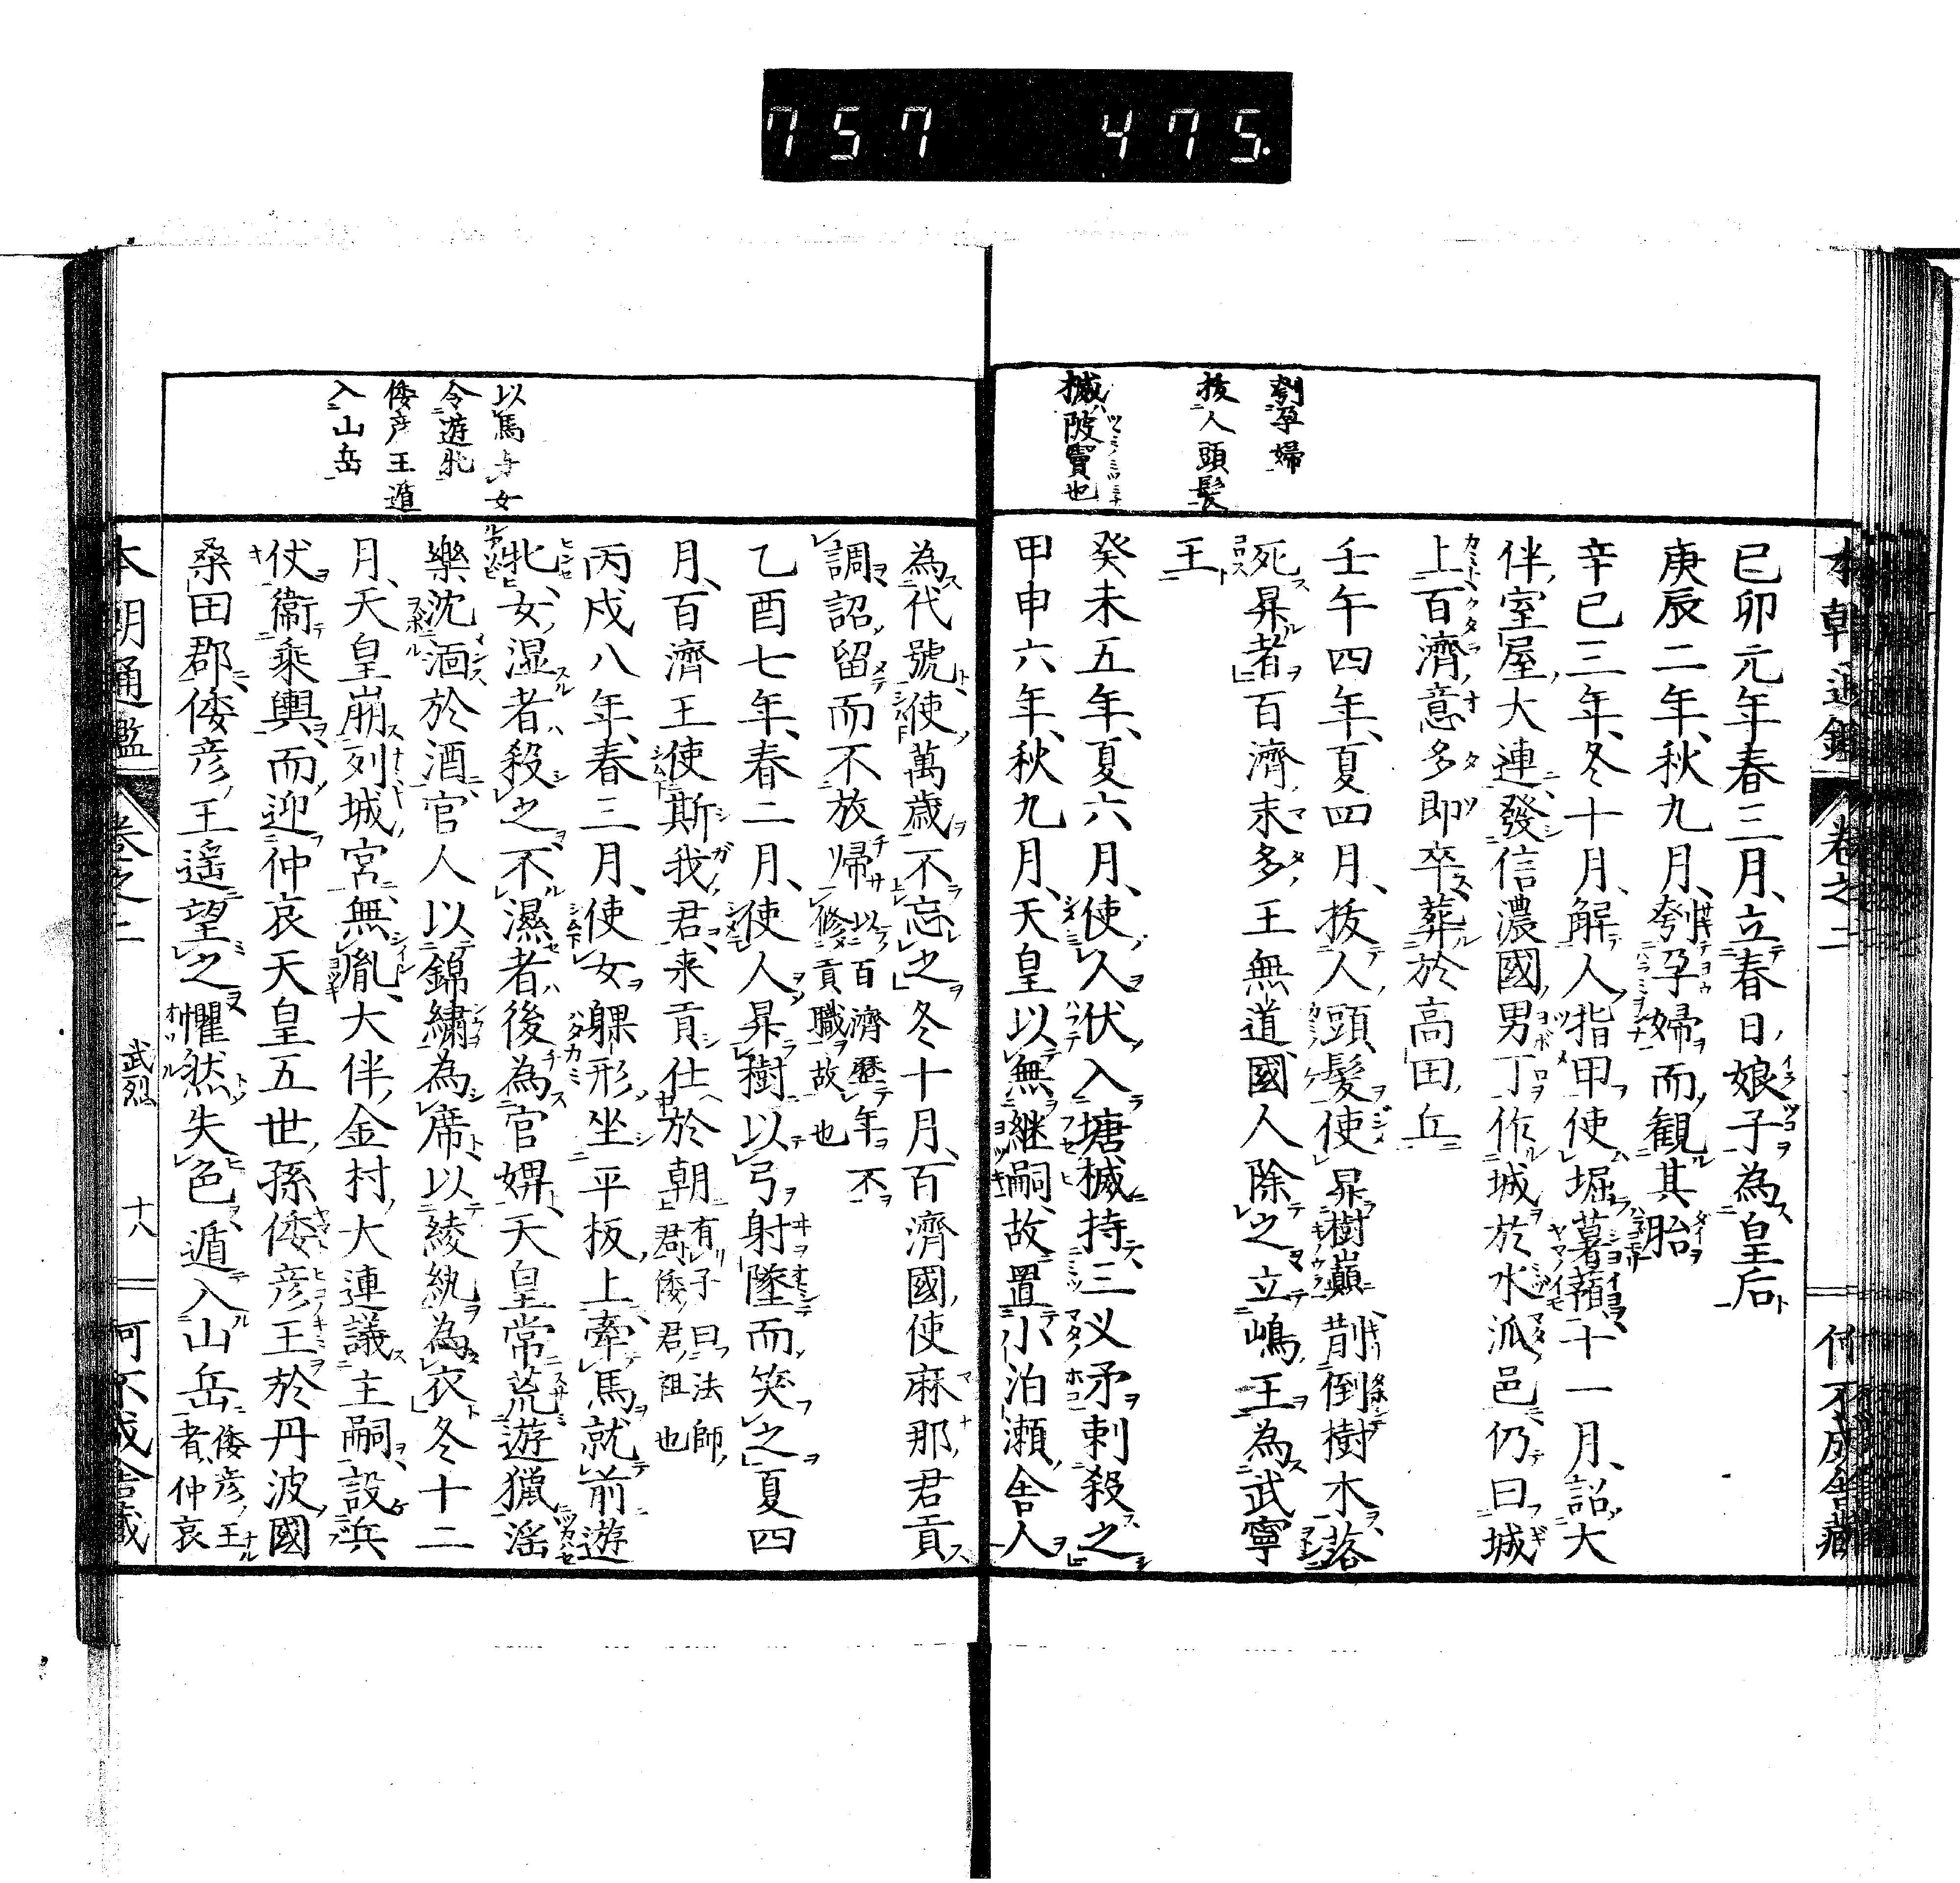 757 475.
本朝通鑑 卷之二 何不成舎藏
刳孕婦
抜人頭髮
楲陂竇也
已卯元年春三月、立春日娘子為皇后
庚辰二年、秋九月、刳孕婦而觀其胎
辛已三年、冬十月、解人指甲使堀薯蕷十一月、詔大
伴室屋大連發信濃國男丁作城於水派邑仍曰城
上百濟意多郎卒葬於高田丘
壬午四年、夏四月、抜人頭髮使昇樹巔斮倒樹木落
死昇者百濟末多王無道國人除之立嶋王為武寧
王
癸未五年、夏六月、使人伏入塘楲持三叉矛刺殺之
甲申六年、秋九月、天皇以無継嗣故置小泊瀬舎人
以馬与女
令遊牝
倭彦王遁
入山岳
為代號使萬歳不忘之冬十月、百濟國使麻那君貢
調詔留而不放歸以百濟歴年不修貢職故也
乙酉七年、春二月、使人昇樹以弓射墜而笑之夏四
月、百濟王使斯我君来貢仕於朝有子曰法師君倭君祖也
丙戍八年、春三月、使女躶形坐平板上牽馬就前遊
牝女湿者殺之不濕者後為官婢天皇常荒遊獵滛
樂沈湎於酒官人以錦繡為席以綾紈為衣冬十二
月、天皇崩列城宮無胤大伴金村大連議主嗣設兵
仗衞乘輿而迎仲哀天皇五世孫倭彦王於丹波國
桑田郡倭彦王遥望之懼然失色遁入山岳倭彦王者仲哀
本朝通鑑 卷之二 武烈 十八 何不成舎藏